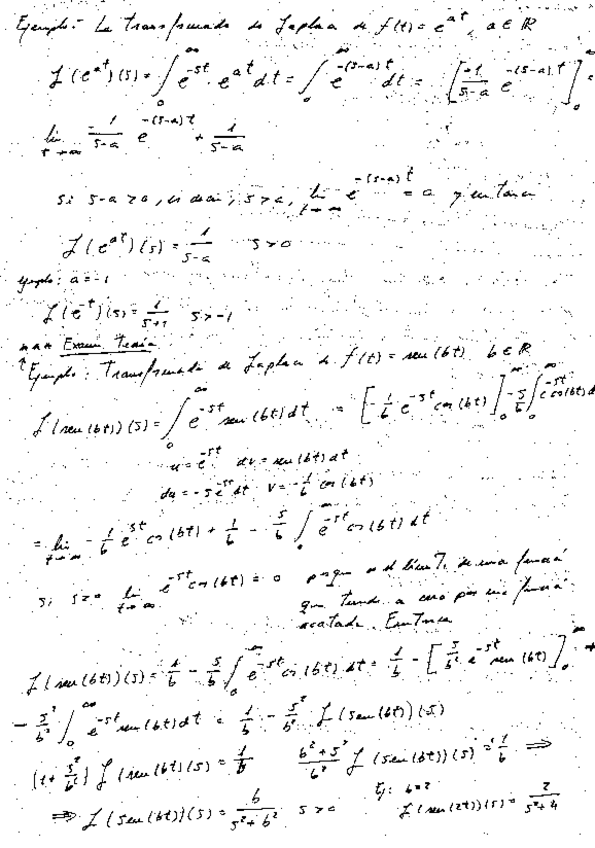 Ejemplo:- La transformada de Laplace de f(t) = e^{at}, a ∈ ℝ
ℒ(e^{at})(s) = ∫_0^∞ e^{-st} · e^{at} dt = ∫_0^∞ e^{-(s-a)t} dt = [-1/(s-a) e^{-(s-a)t}]_0^∞
lim_{t→∞} -1/(s-a) e^{-(s-a)t} + 1/(s-a)
Si s-a > 0, es decir, s > a, lim_{t→∞} e^{-(s-a)t} = 0 y entonces
ℒ(e^{at})(s) = 1/(s-a) s > 0
ejemplo: a = -1
ℒ(e^{-t})(s) = 1/(s+1) s > -1
*** Examen Teoría
Ejemplo: Transformada de Laplace de f(t) = sen(bt) b ∈ ℝ
ℒ(sen(bt))(s) = ∫_0^∞ e^{-st} sen(bt) dt = [-1/b e^{-st} cos(bt)]_0^∞ - s/b ∫_0^∞ e^{-st} cos(bt) d
u = e^{-st} dv = sen(bt) dt
du = -s e^{-st} dt v = -1/b cos(bt)
= lim_{t→∞} -1/b e^{-st} cos(bt) + 1/b - s/b ∫_0^∞ e^{-st} cos(bt) dt
Si s > 0 lim_{t→∞} e^{-st} cos(bt) = 0 porque es el límite de una función
que tiende a cero por una función
acotada. Entonces
ℒ(sen(bt))(s) = 1/b - s/b ∫_0^∞ e^{-st} cos(bt) dt = 1/b - [s/b² e^{-st} sen(bt)]_0^∞ +
- s²/b² ∫_0^∞ e^{-st} sen(bt) dt = 1/b - s²/b² ℒ(sen(bt))(s)
(1 + s²/b²) ℒ(sen(bt))(s) = 1/b (b²+s²)/b² ℒ(sen(bt))(s) = 1/b ⟹
⟹ ℒ(sen(bt))(s) = b/(s²+b²) s > 0 Ej: b=2 ℒ(sen(2t))(s) = 2/(s²+4)